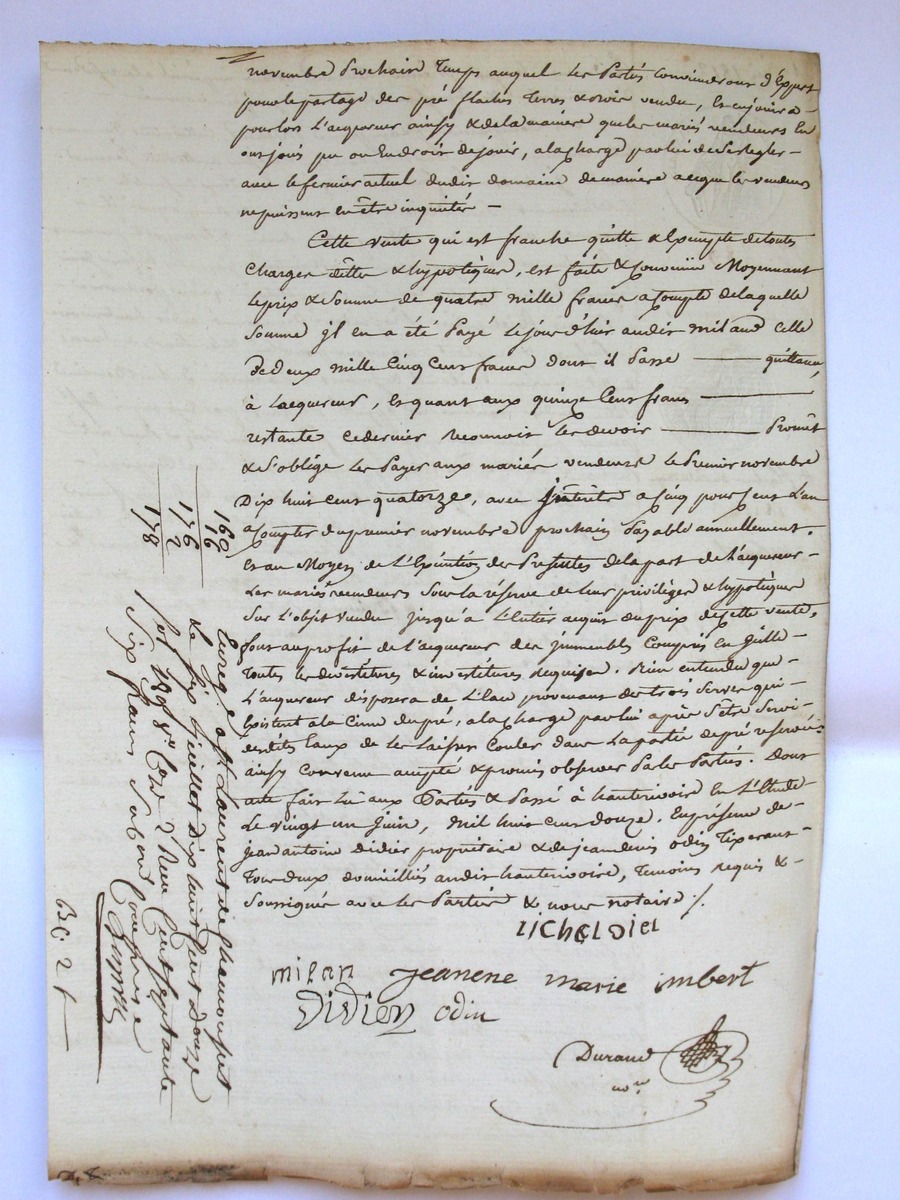 novembre Prochain temps auquel les Parties Conviendront d'Expert
pour le partage des pré flachés terres & bois vendu, Et en jouira
pour lors L'acquereur ainsy & de la maniere que les mariés vendeurs En
ont joüis pu ou En droit de joüir, a la charge par lui de se Regler
avec le fermier actuel dudit domaine de maniere a ce que les vendeurs
ne puissent en être inquietés —
Cette vente qui est franche quitte & Exempte de toutes
Charges dêtte & hypotèques, est faite & Convenüe Moyennant
le prix & Somme de quatre mille francs a Compte de laquelle
Somme jl en a été Payé le jour d'hier audit milan celle
de deux mille Cinq Cent francs dont il Passe — quittance,
à L'acquereur, Et quant aux quinze Cent francs —
restante ce dernier Reconnoit les devoir — Promêt
& s'oblige les Payer aux mariés vendeurs le Premier novembre
Dix huit cent quatorze, avec Jnterêts a Cinq pour Cent L'an
a Compter du premier novembre prochain Payable annuellement.
Et au Moyen de L'Exécution des Presentes de la part de L'acquereur
Les mariés vendeurs Sous la réserve de leur privilèges & hypotèques
Sur L'objet Vendu jusqu'à L'Entier acquit du prix de cette vente,
font au profit de L'acquereur des jmmeubles Compris En jcelle
toutes les devétitures & investitures Requises. Bien entendu que
L'acquereur disposera de L'Eau provenant des trois Serves qui
Existent a la Cime du pré, a la charge par lui après s'être Servi
desdits Eaux de les laisser Couler dans la partie de pré reservée
ainsy convenu accepté & promis observer Par les Parties. Dont
acte fait Lu aux Parties & Passé à hauterivoire En L'Etude
Le vingt un Juin, mil huit cent douze. En présence de
jean antoine Didier propriétaire & de jean denis odin tixerant
tous deux domiciliés audit hauterivoire, temoins Requis &
Soussignés avec les Parties & nous notaire ./.
milan jeanene marie imbert
Didier odin
Durand
no.re
160
16
176
2
178
Enreg.é a St Laurent de Chamousset
Le Six juillet dix huit Cent douze
fol 180 v.o Cases 2 Reçu Cent Septante
Six francs Subv.on Comprise